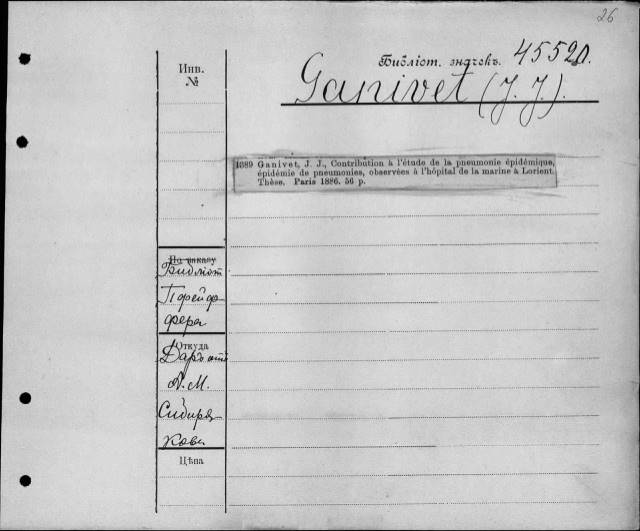 26
Библіот. значекъ. 45520.
Инв.
№
Ganivet (J. J.).
1389 Ganivet, J. J., Contribution à l'étude de la pneumonie épidémique,
épidémie de pneumonies, observées à l'hôpital de la marine à Lorient.
Thèse. Paris 1886. 56 p.
По заказу
Библіот
Пфейф
фера
Откуда
Даръ отъ
А. М.
Сибиря
кова
Цѣна